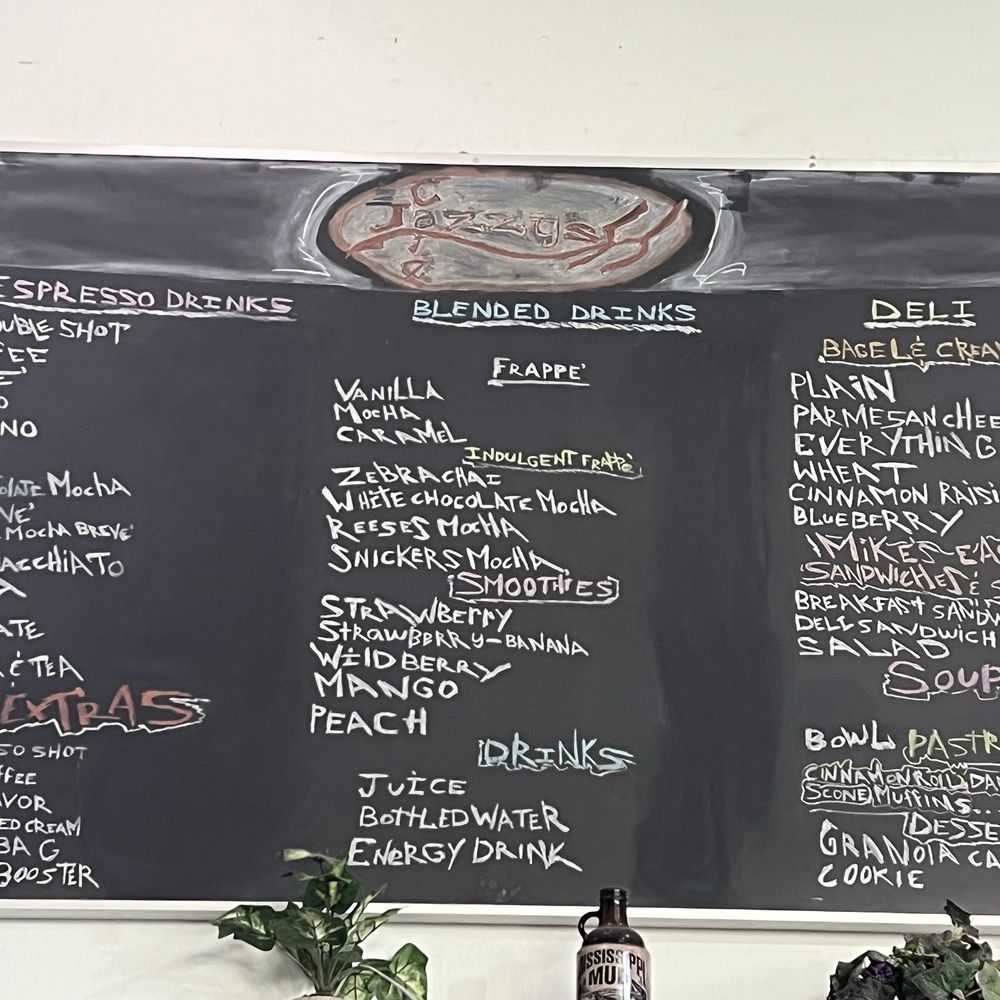 Cafe
Jazzys
ESPRESSO DRINKS
OUBLE SHOT
FEE
NO
OLATE MOCHA
VE'
MOCHA BREVE'
ACCHIATO
A
ATE
& TEA
EXTRAS
SO SHOT
FFEE
AVOR
ED CREAM
BAG
BOOSTER
BLENDED DRINKS
FRAPPE'
VANILLA
MOCHA
CARAMEL
INDULGENT FRAPPE'
ZEBRA CHAI
WHITE CHOCOLATE MOCHA
REESES MOCHA
SNICKERS MOCHA
SMOOTHIES
STRAWBERRY
STRAWBERRY-BANANA
WILDBERRY
MANGO
PEACH
DRINKS
JUICE
BOTTLED WATER
ENERGY DRINK
DELI
BAGEL & CREA
PLAIN
PARMESAN CHEE
EVERYTHING
WHEAT
CINNAMON RAISI
BLUEBERRY
MIKE'S EA
SANDWICHES &
BREAKFAST SANDW
DELI SANDWICH
SALAD
SOUP
BOWL PASTR
CINNAMON ROLL DA
SCONE MUFFINS...
DESSE
GRANOLA CA
COOKIE
MISSISSIPPI
MUD